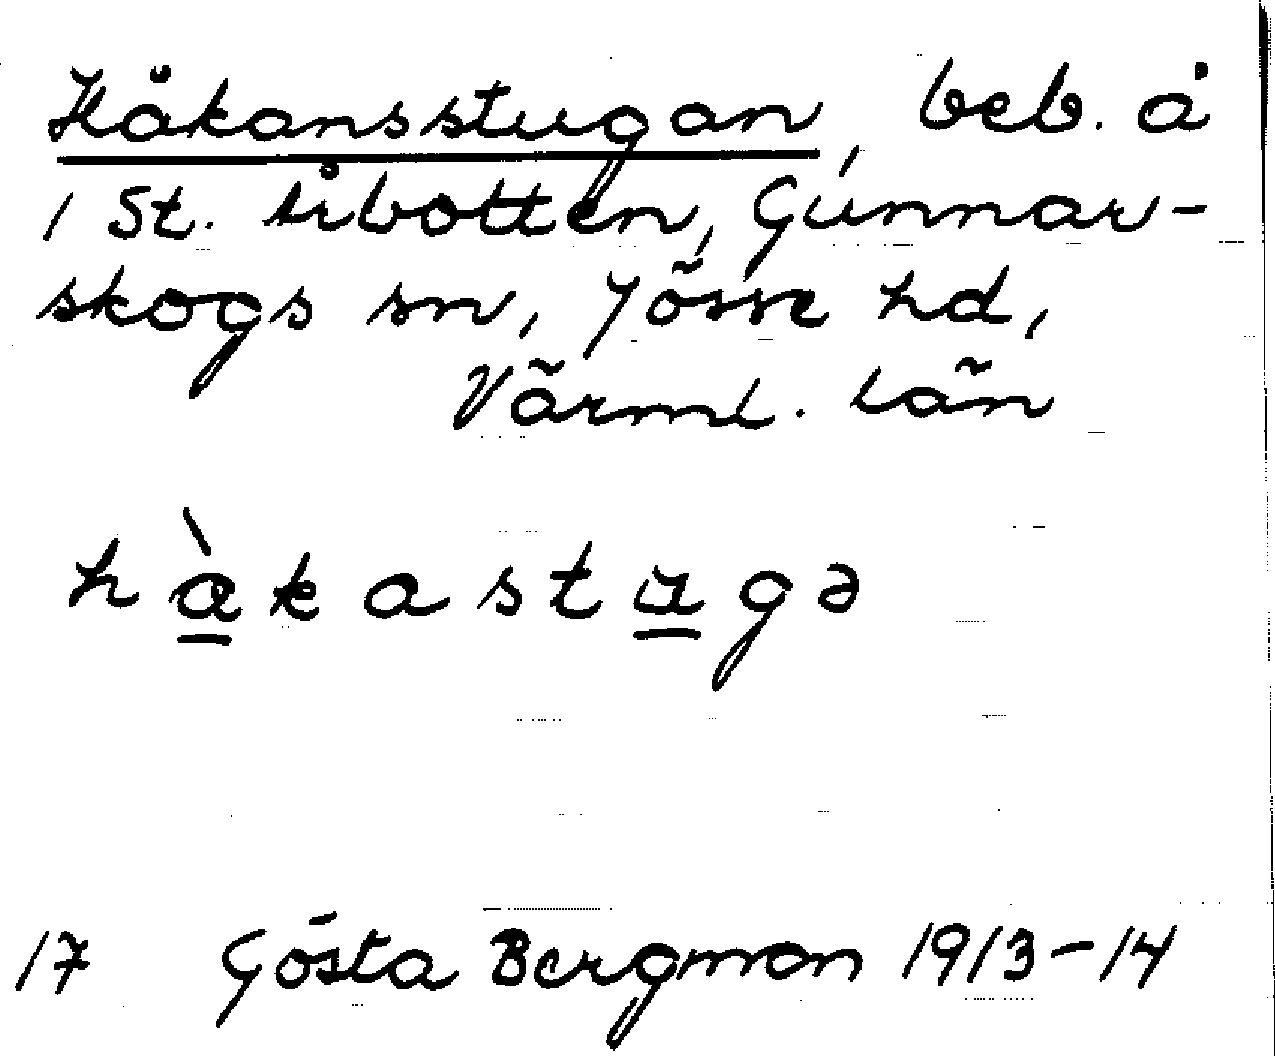 Håkansstugan, beb. å
1 St. Årbotten, Gunnar-
skogs sn, Jösse hd,
Värml. län
hà̱kastu̱gə
17 Gösta Bergman 1913-14